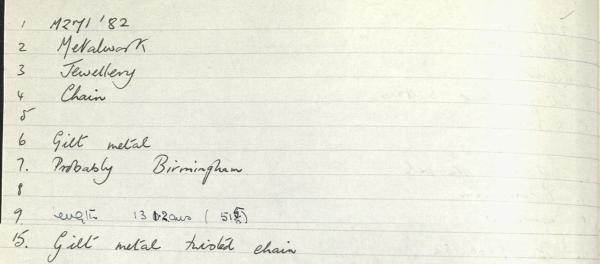 1 M271 '82
2 Metalwork
3 Jewellery
4 Chain
5
6 Gilt metal
7. Probably Birmingham
8
9. length
15. Gilt metal twisted chain